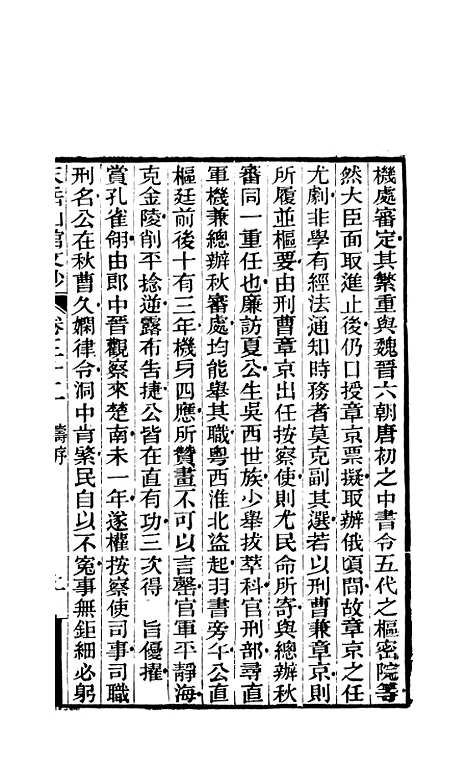 機處審定其繁重與魏晉六朝唐初之中書令五代之樞密院等
然大臣面取進止後仍口授章京票擬取辦俄頃間故章京之任
尤劇非學有經法通知時務者莫克副其選若以刑曹兼章京則
所履並樞要由刑曹章京出任按察使則尤民命所寄與總辦秋
審同一重任也廉訪夏公生吳西世族少舉拔萃科官刑部尋直
軍機兼總辦秋審處均能舉其職粵西淮北盜起羽書旁午公直
樞廷前後十有三年機身四應所贊畫不可以言罄官軍平靜海
克金陵削平捻逆露布告捷公皆在直有功三次得 旨優擢
賞孔雀翎由郎中晉觀察來楚南未一年遂權按察使司事司職
刑名公在秋曹久嫻律令洞中肯綮民自以不冤事無鉅細必躬
天岳山館文鈔 卷三十二 壽序